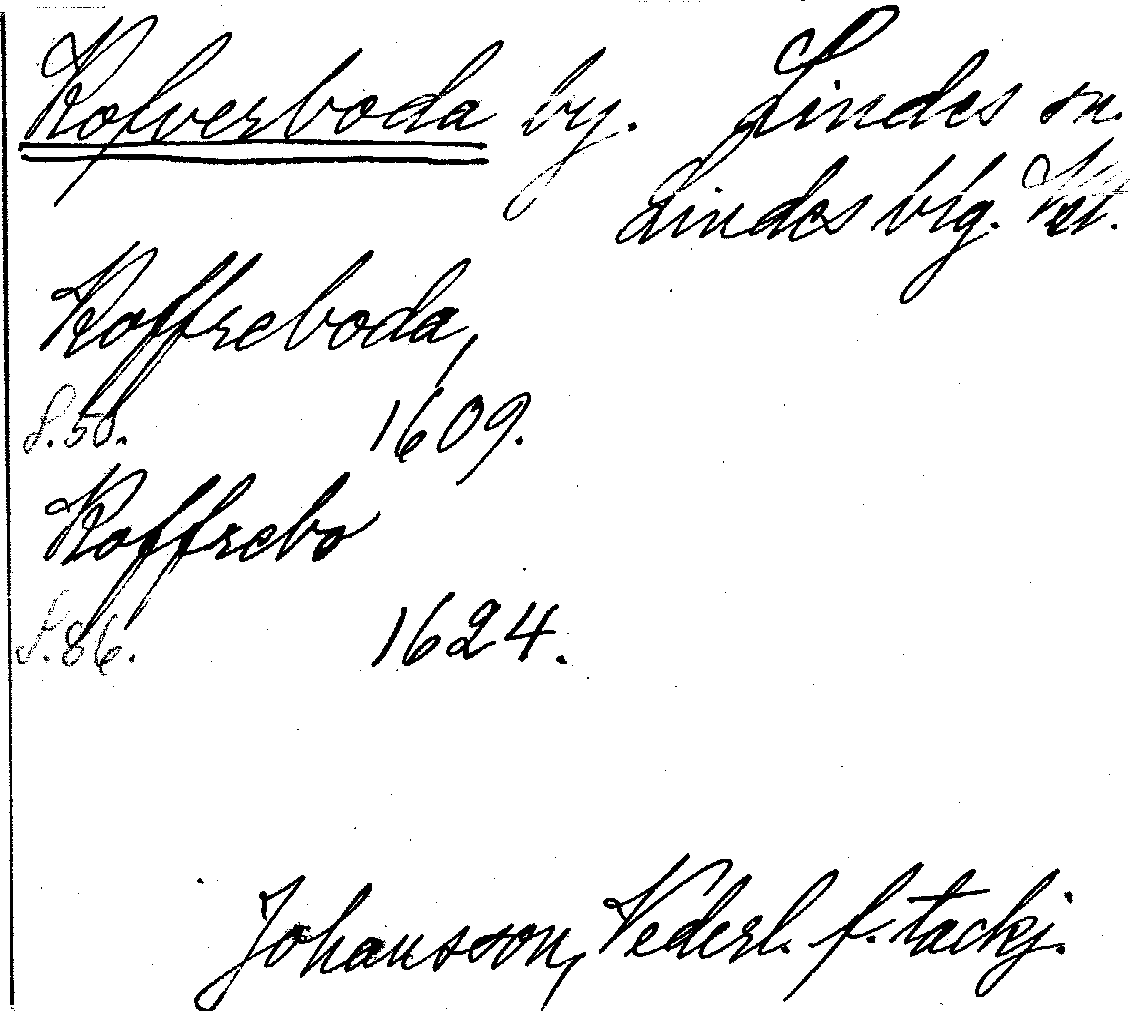 Kofverboda by. Lindes sn.
Lindes blg. Vstm.
Koffreboda,
s. 50. 1609.
Koffrebo
s. 86. 1624.
Johansson, Vederl. f. tackj.